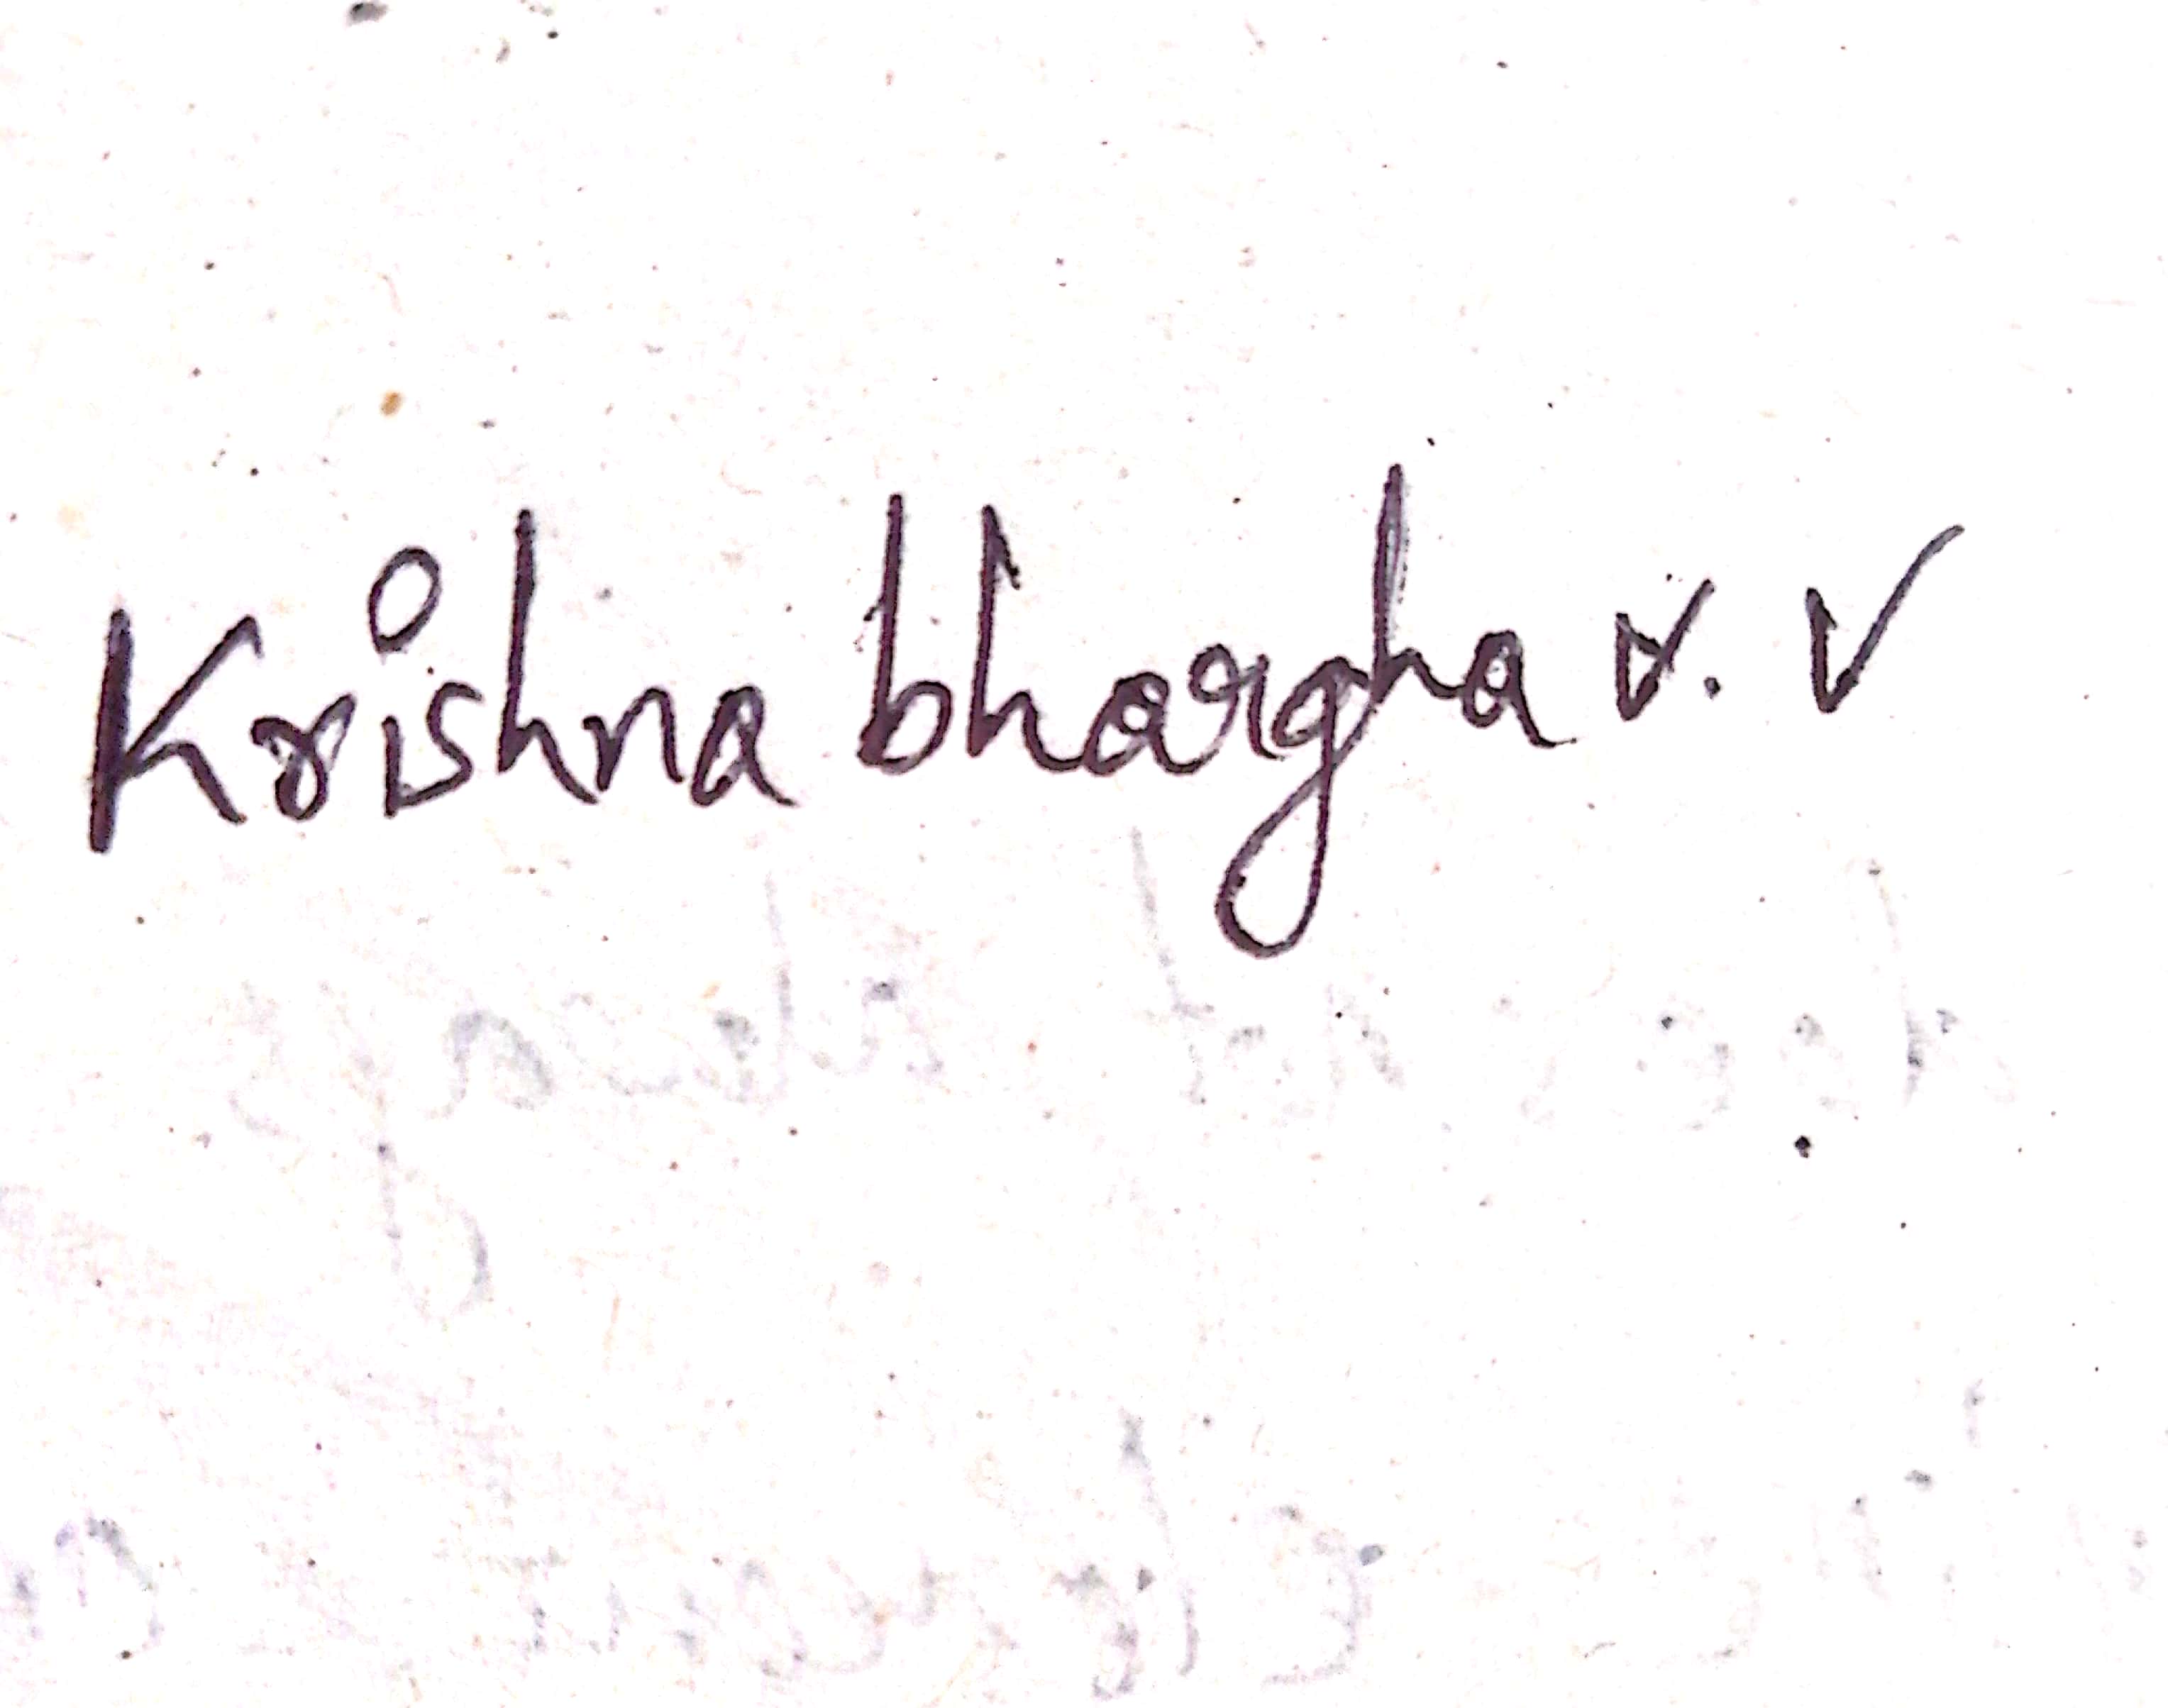 Krishna bhargha v. v